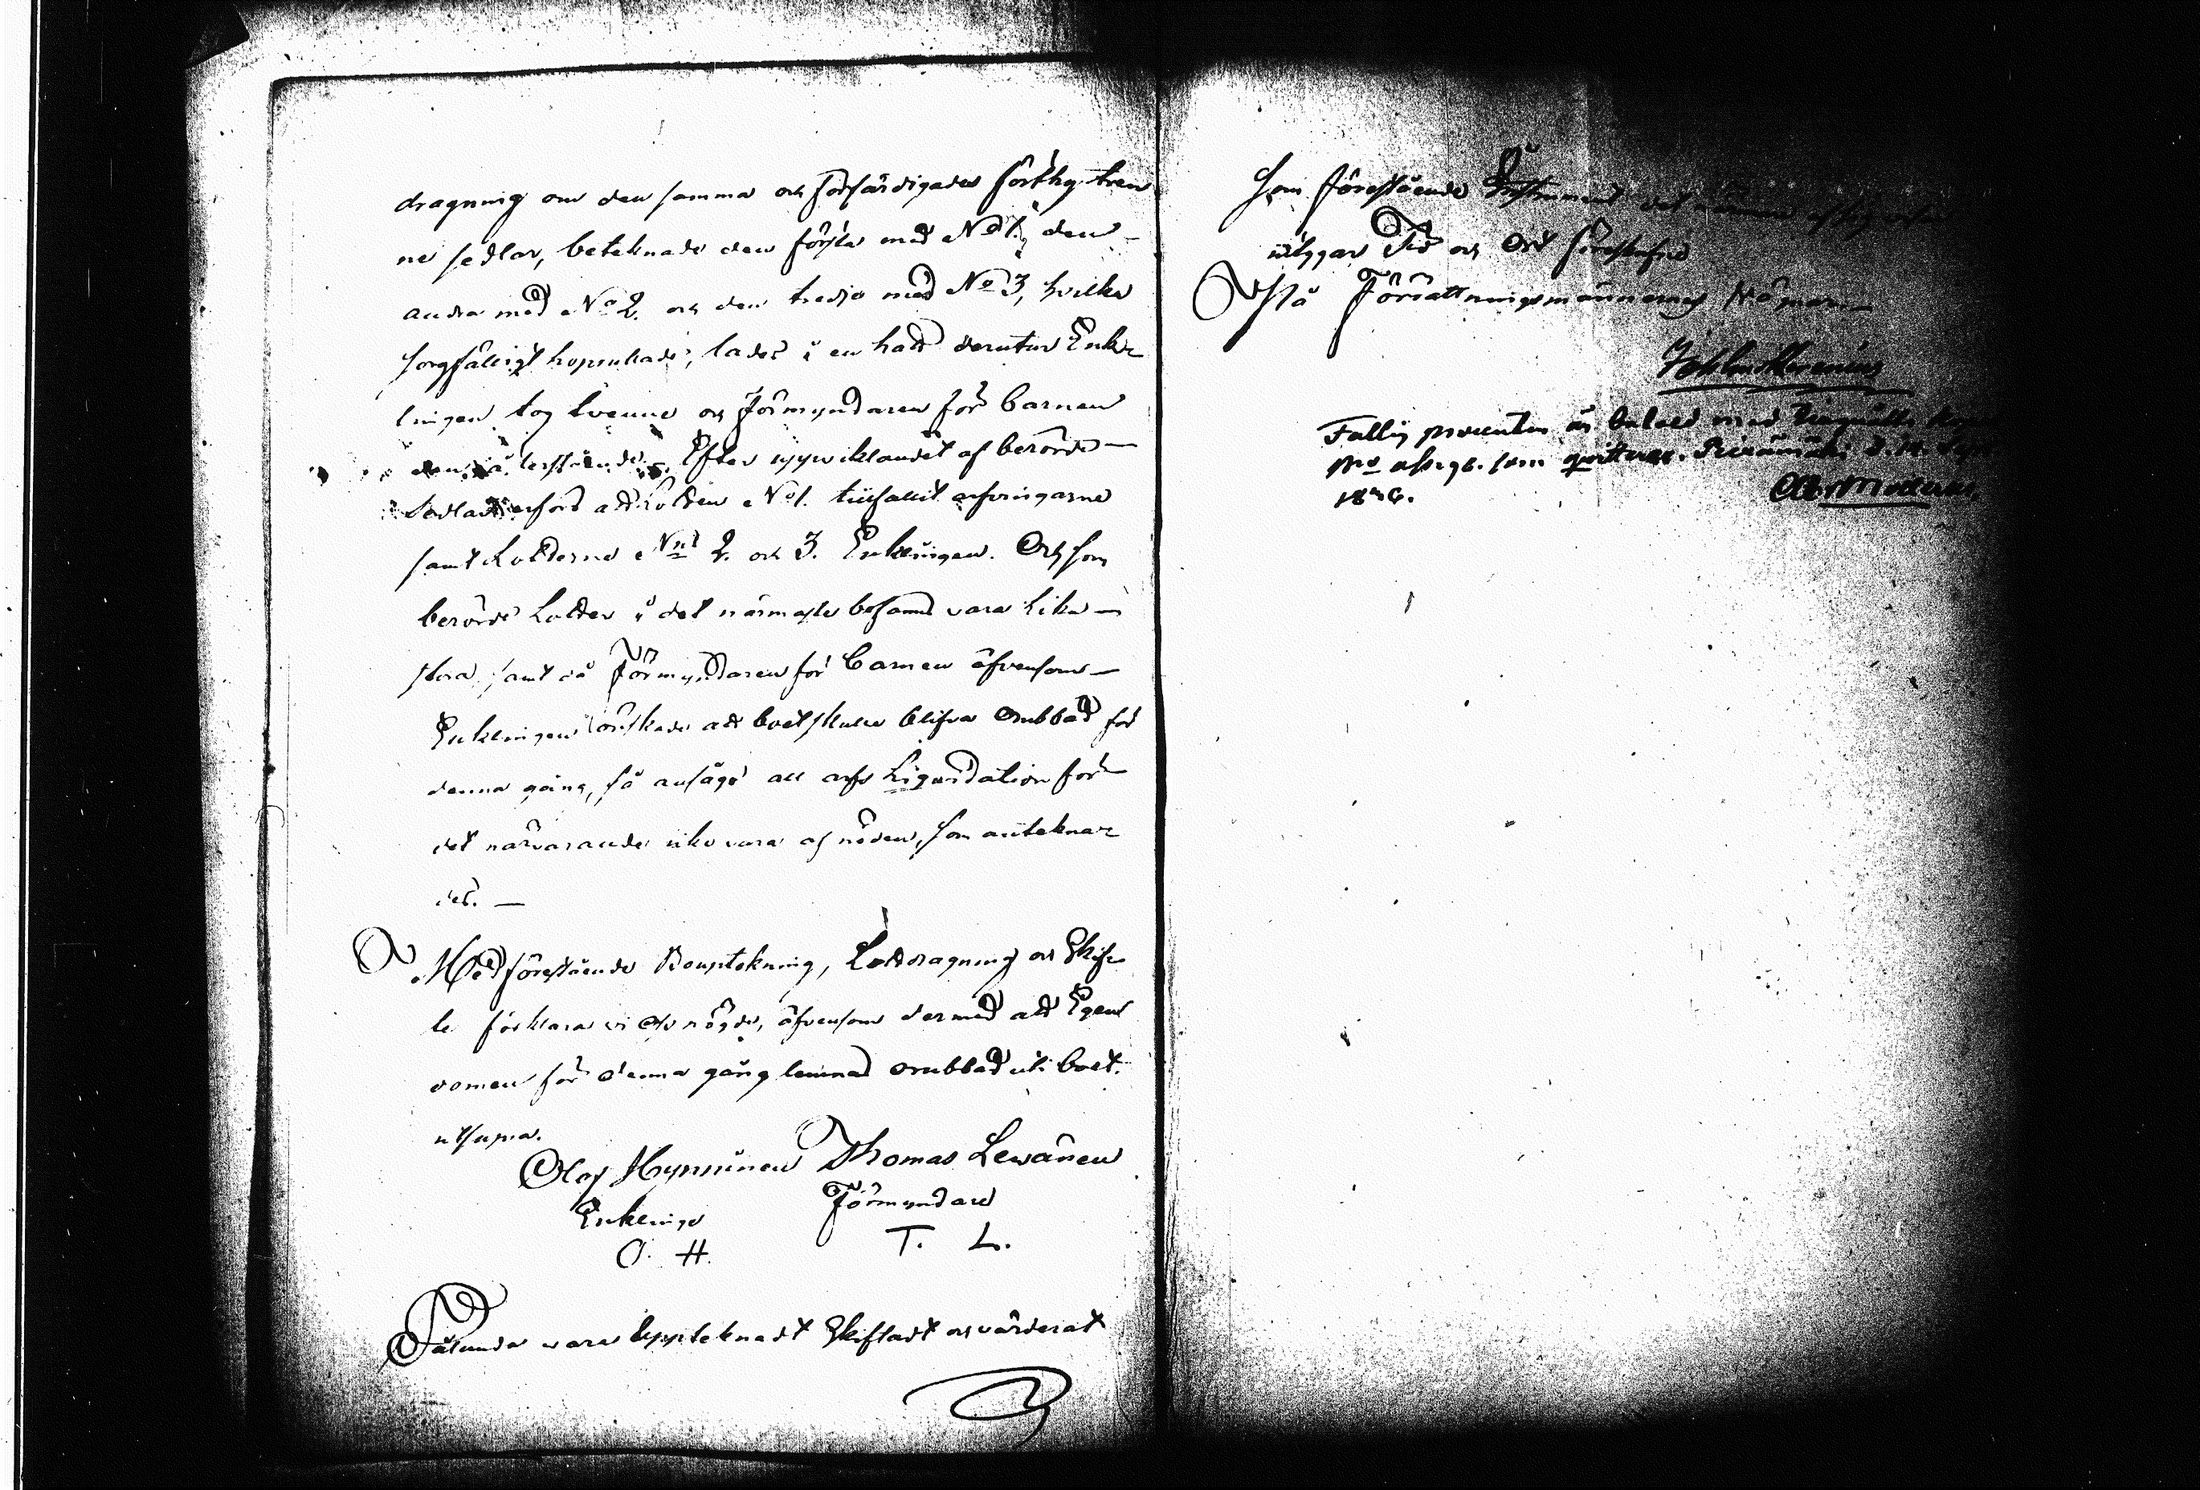 dragning om den samma och förfärdigades förthy tren
ne sedlar, betecknade den första med No 1, den
andra med No 2. och den tredje med No 3, hvilka
sorgfälligt hoprullade, lades i en hatt derutur Enk-
lingen tog tvenne och Förmyndaren för barnen
den återstående. Efter uppvecklandet af berörde
Sedlar erfors att Lotten No 1. tillfallit arfvingarne
samt Lotterne No 2. och 3. Enklingen. Och som
berörde Lotter i det närmaste befanns vara Lika
stora, samt då Förmyndaren för barnen äfvensom
Enklingen önskade att boet skulle blifva orubbad för
denna gång, så ansågs all arfs Liquidation för
det närvarande icke vara af nöden, som antekna-
des. —
Med förestående Bouptekning, Lottdragning och Skif-
te förklara vi oss nögde, äfvensom dermed att Egen
domen för denna gång lemnad orubbad uti boet.
utsupra.
Olof Hynninen Thomas Lewänen
Enkling Förmyndare
O. H. T. L.
Sålunda vara Upptecknadt Skiftadt och värderat
som förestående Instrument
utvisar Tid och Ort föreskrifne
På Förrättningsmännernes Vägnar
Fattig procenten är betald med
som qvitteras.
1846.